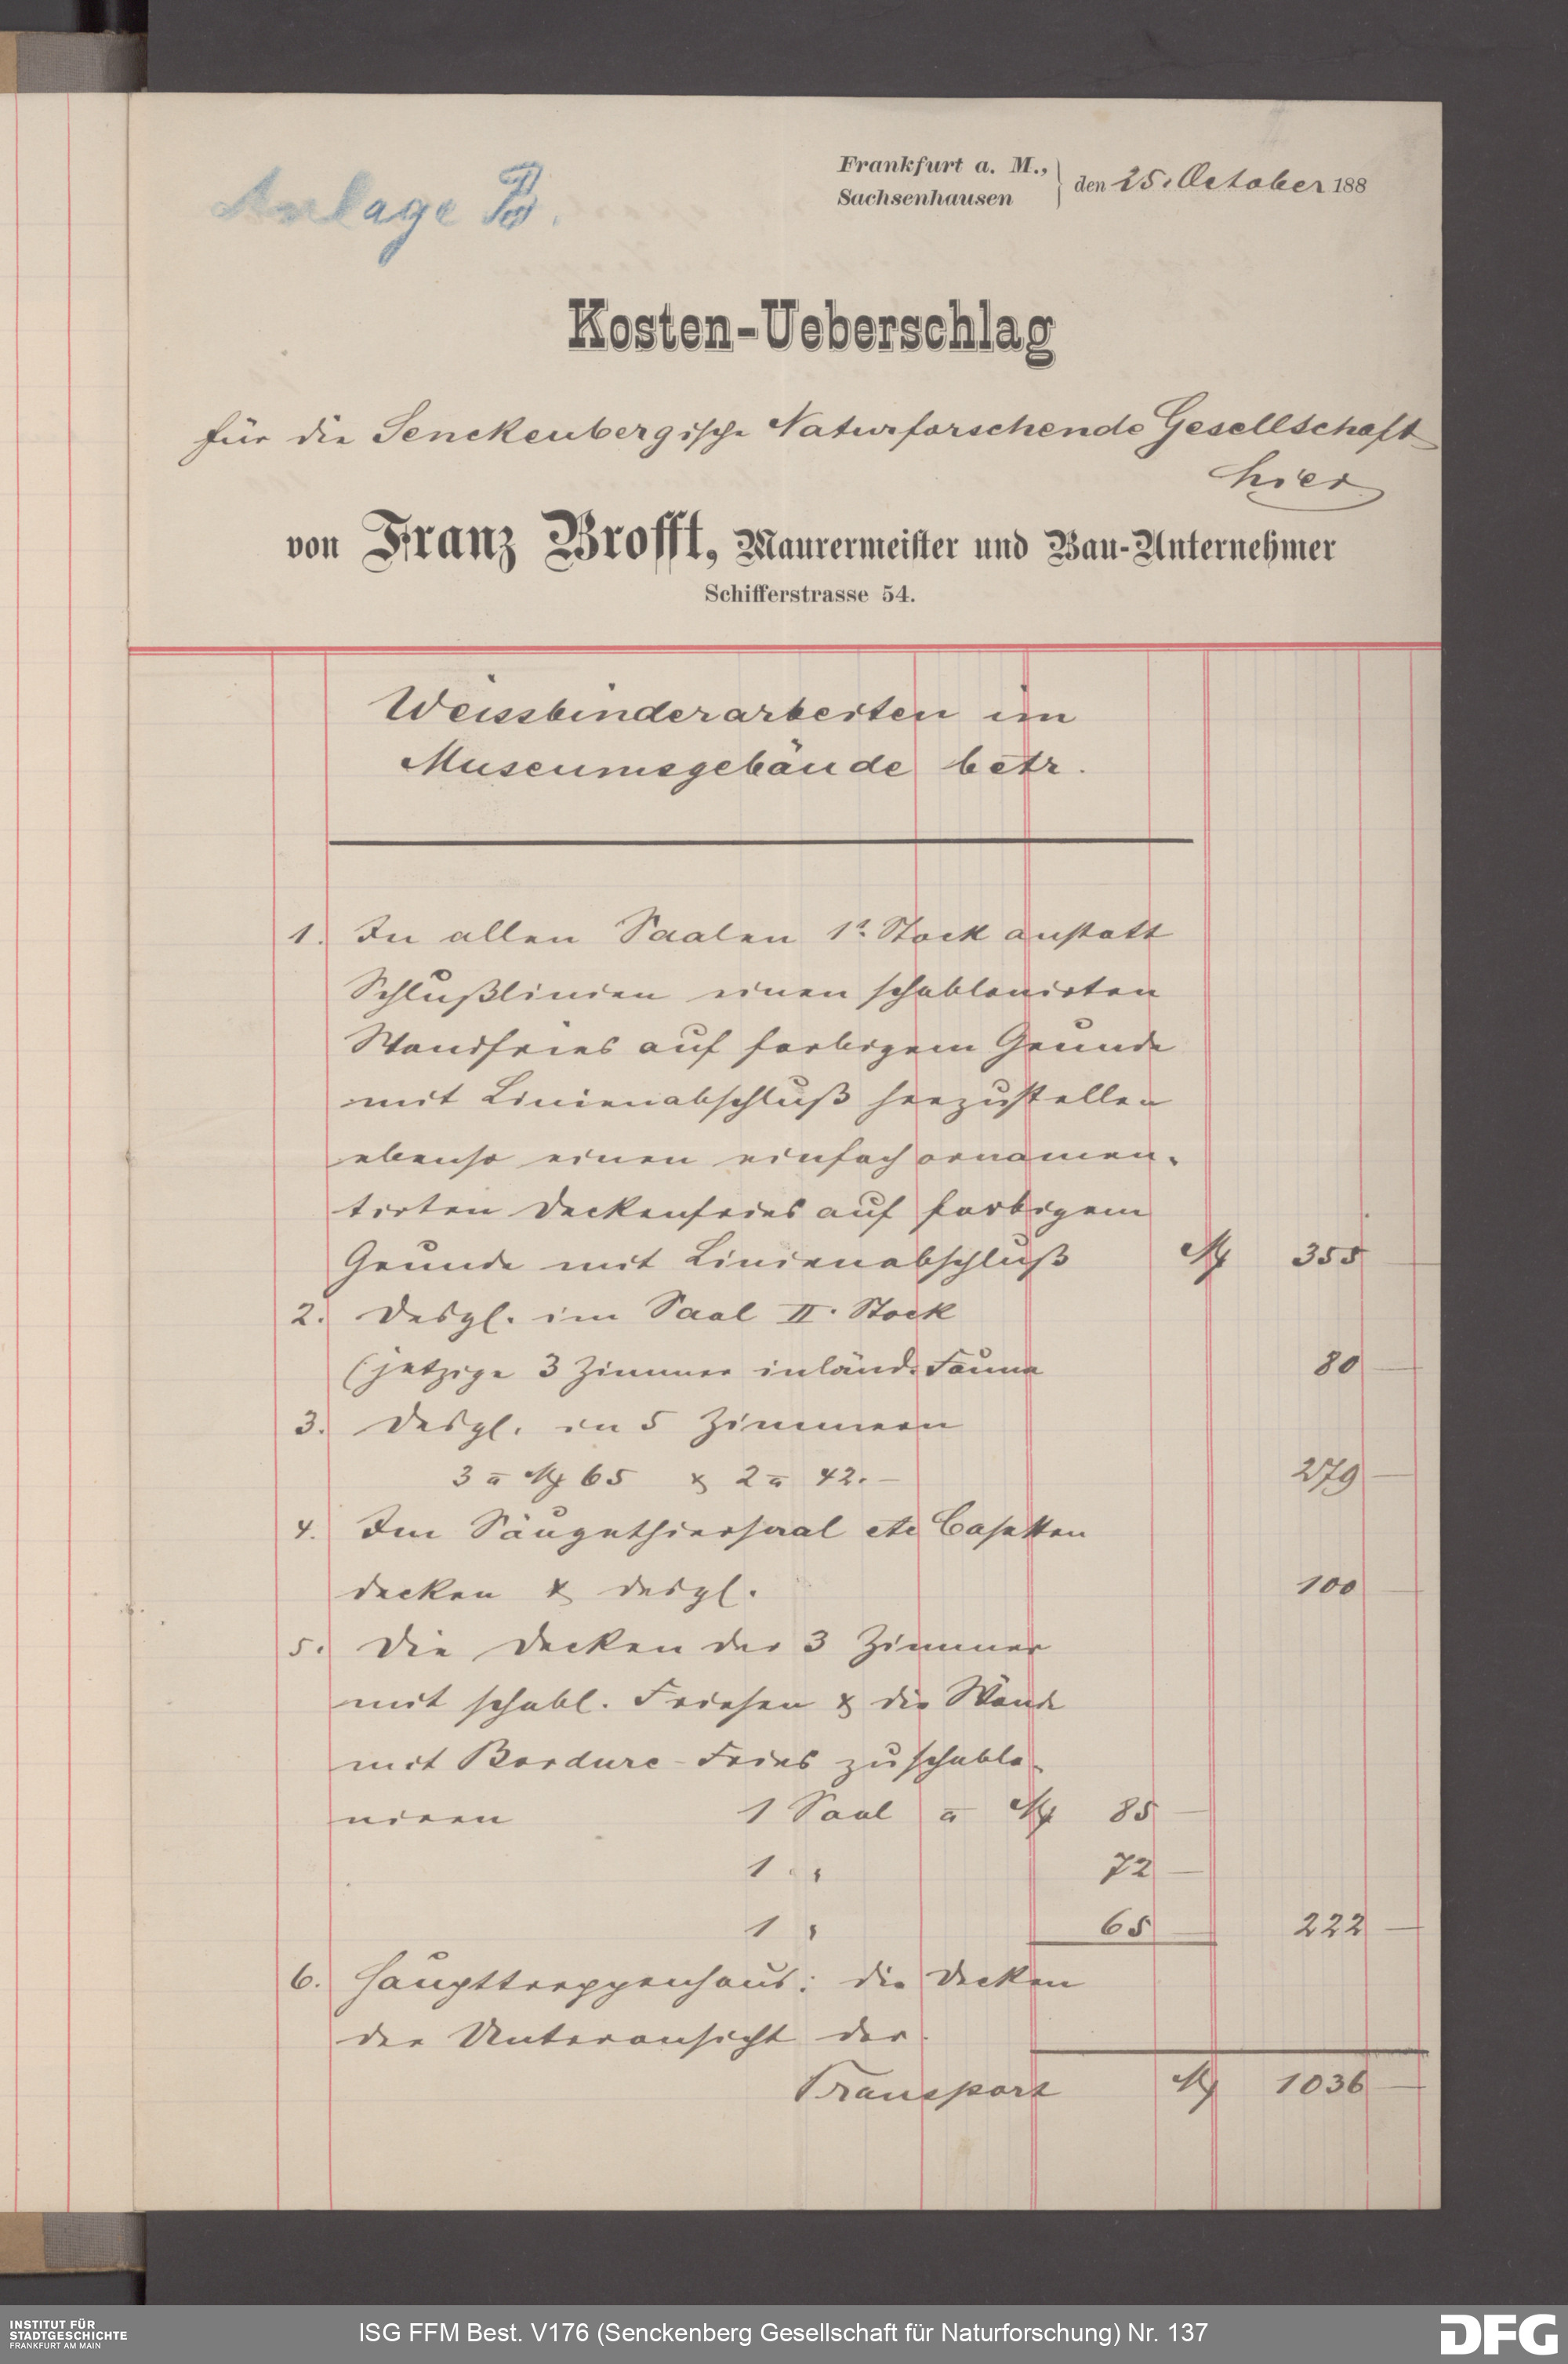 Anlage B.
Frankfurt a. M.,
Sachsenhausen
den 25. October 188
Kosten-Ueberschlag
für die Senckenbergische Naturforschende Gesellschaft
hier
von Franz Brofft, Maurermeister und Bau-Unternehmer
Schifferstrasse 54.
Weissbinderarbeiten im
Museumsgebäude betr.
1. In allen Saalen 1t. Stock anstatt
Schlußlinien einen schablonirten
Wandfries auf farbigem Grunde
mit Linienabschluß herzustellen
ebenso einen einfach ornamen-
tirten Deckenfries auf farbigem
Grunde mit Linienabschluß M 355
2. Desgl. im Saal II. Stock
(jetzige 3 Zimmer inländ. Fauna 80 —
3. Desgl. in 5 Zimmern
3 a M 65 & 2 a 42. — 279 —
4. Im Säugethiersaal etc Casetten
decken & desgl. 100 —
5. Die Decken der 3 Zimmer
mit schabl. Friesen & die Wände
mit Bordure-Fries zu schablo-
niren 1 Saal a M 85 —
1 " 72 —
1 " 65 — 222 —
6. Haupttreppenhaus: die Decken
der Unteransicht der
Transport M 1036 —
INSTITUT FÜR
STADTGESCHICHTE
FRANKFURT AM MAIN
ISG FFM Best. V176 (Senckenberg Gesellschaft für Naturforschung) Nr. 137
DFG